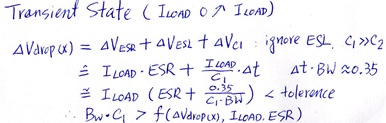 Transient State ( ILOAD 0 ↗ ILOAD )
ΔVdrop(x) = ΔVESR + ΔVESL + ΔVC1 : ignore ESL, C1 >> C2
≅ ILOAD · ESR + ILOAD/C1 · Δt Δt · BW ≈ 0.35
≅ ILOAD ( ESR + 0.35/C1·BW ) < tolerence
∴ BW · C1 > f(ΔVdrop(x), ILOAD, ESR)